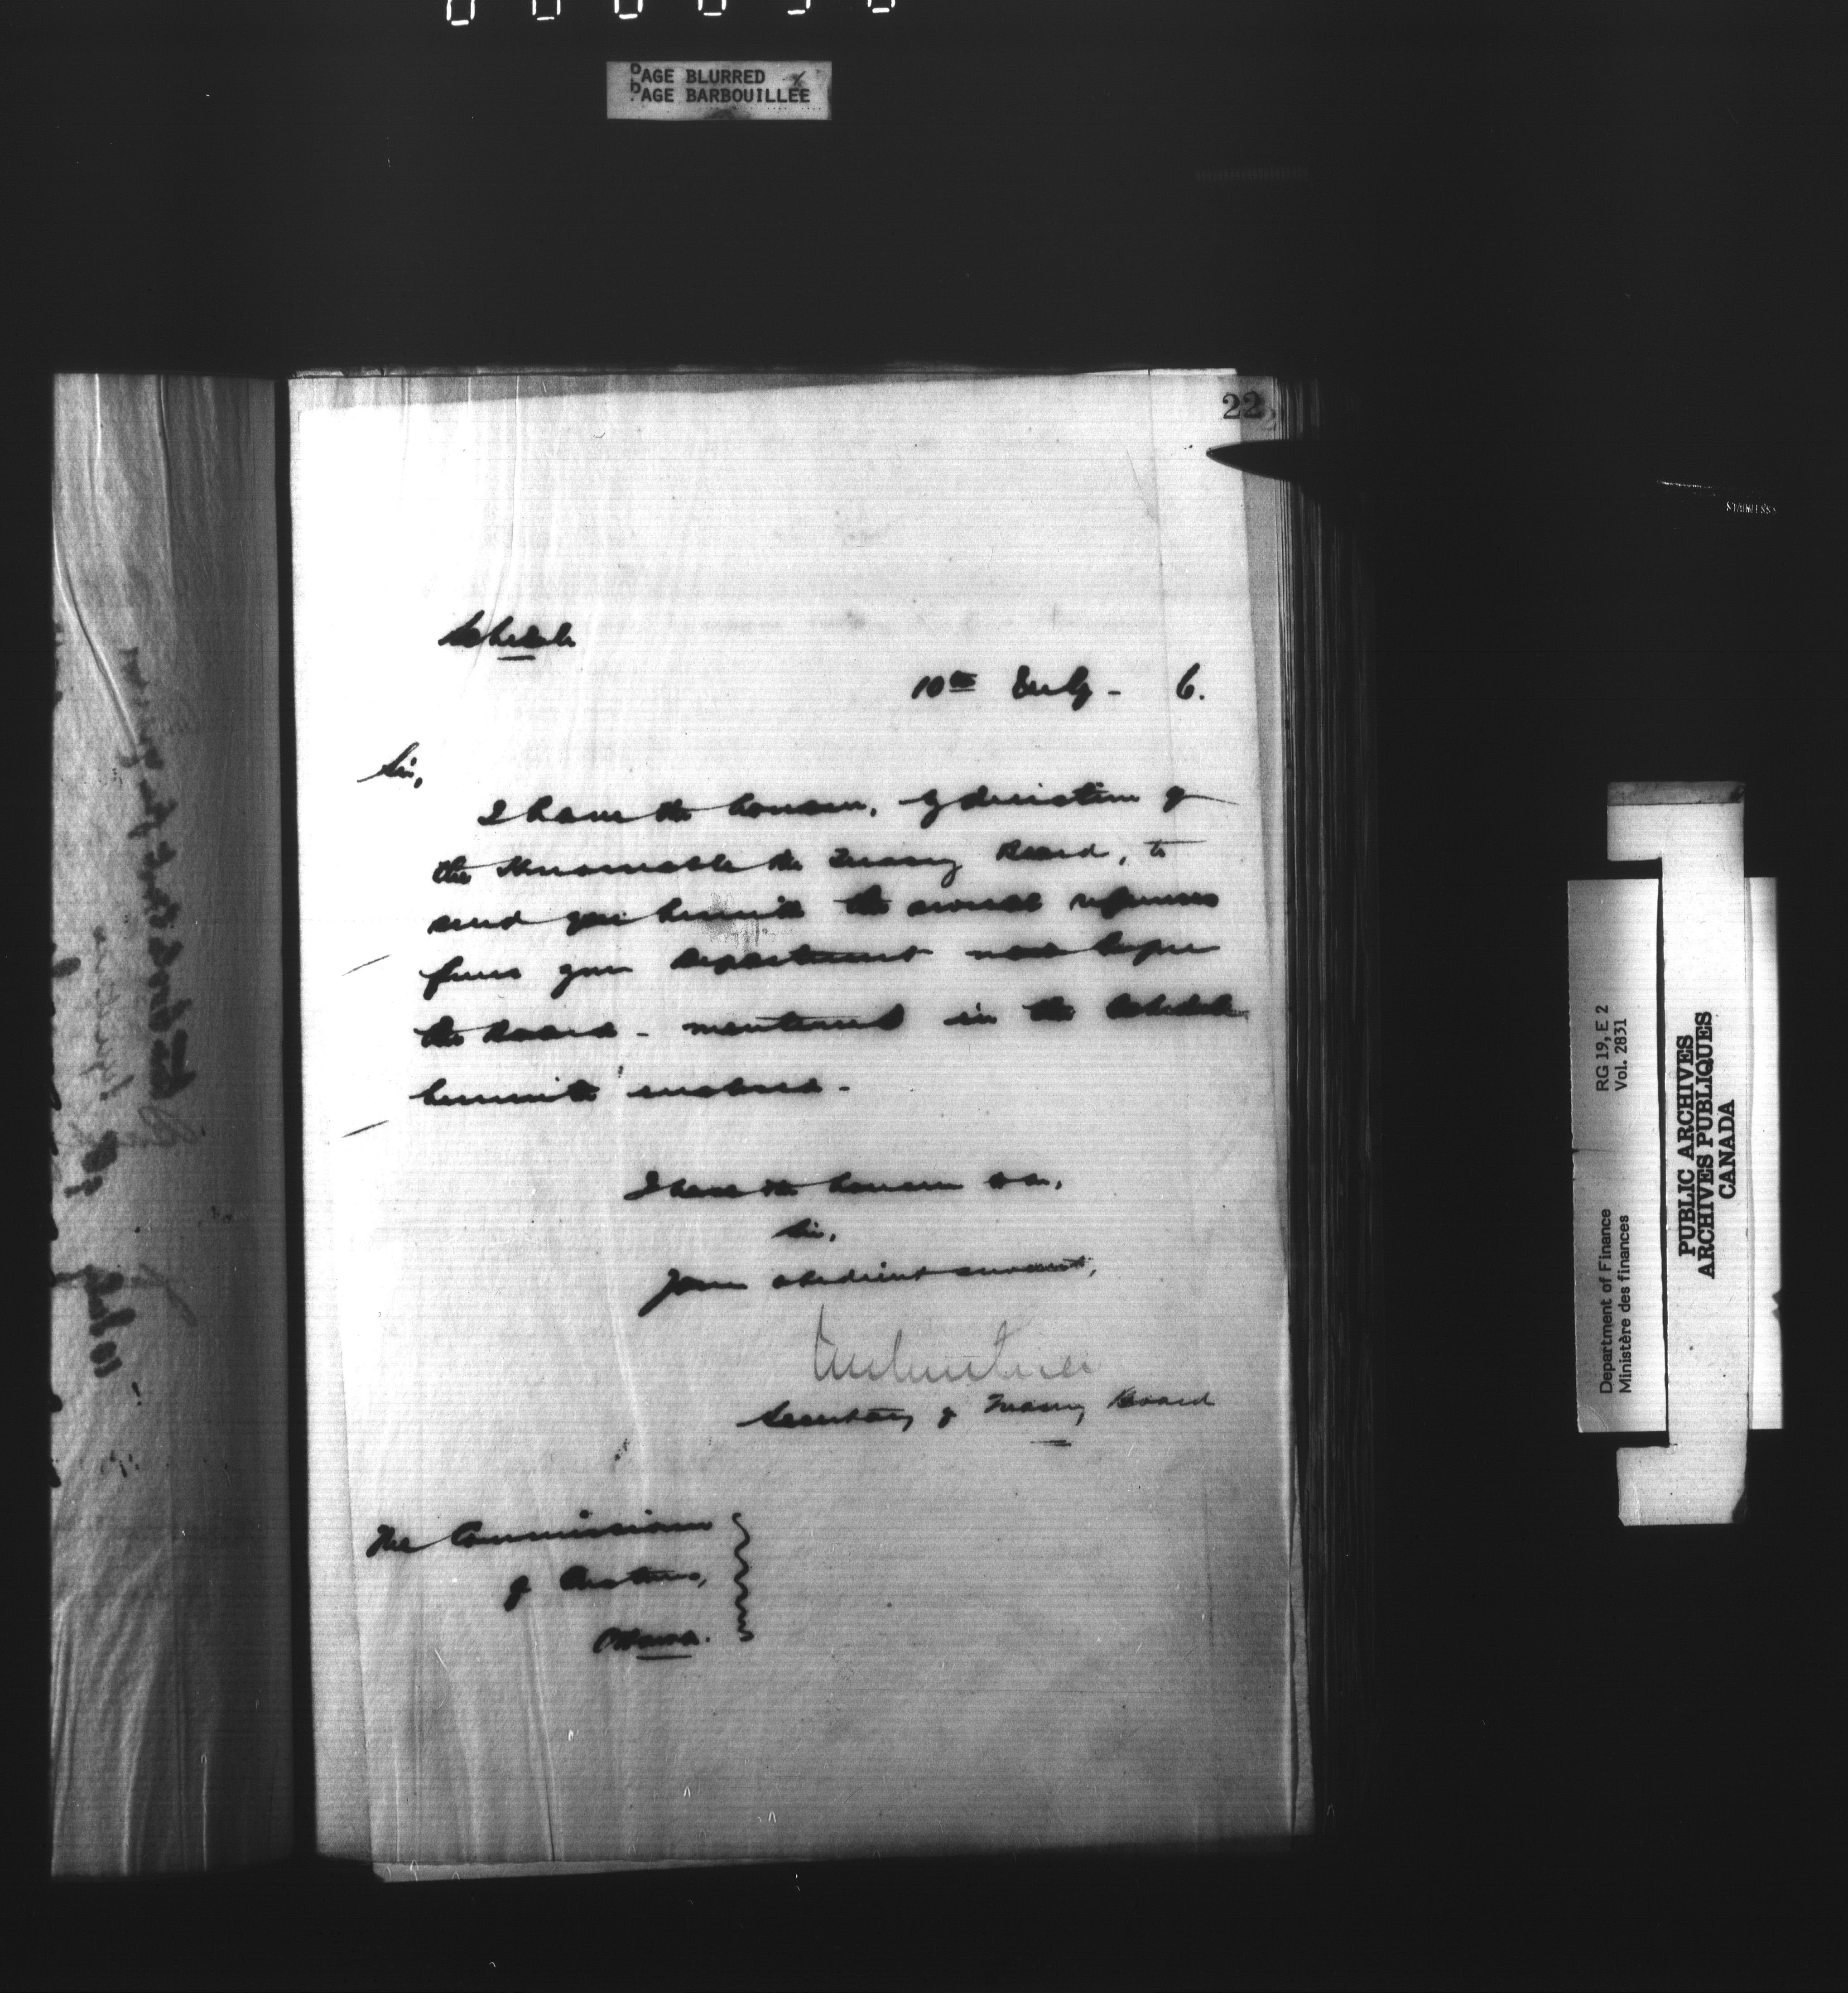 PAGE BLURRED
PAGE BARBOUILLÉE
22
Schedule
10th July - 6.
Sir,
I have the honour, by direction of
the Honourable the Treasury Board, to
send you herewith the several references
from your Department now before
the Board - mentioned in the Schedule
herewith enclosed -
I have the honour to be,
Sir,
Your obedient servant,
Secretary of Treasury Board
The Commissioner
of Customs,
Ottawa.
RG 19, E 2
Vol. 2831
Department of Finance
Ministère des finances
PUBLIC ARCHIVES
ARCHIVES PUBLIQUES
CANADA
STAINLESS